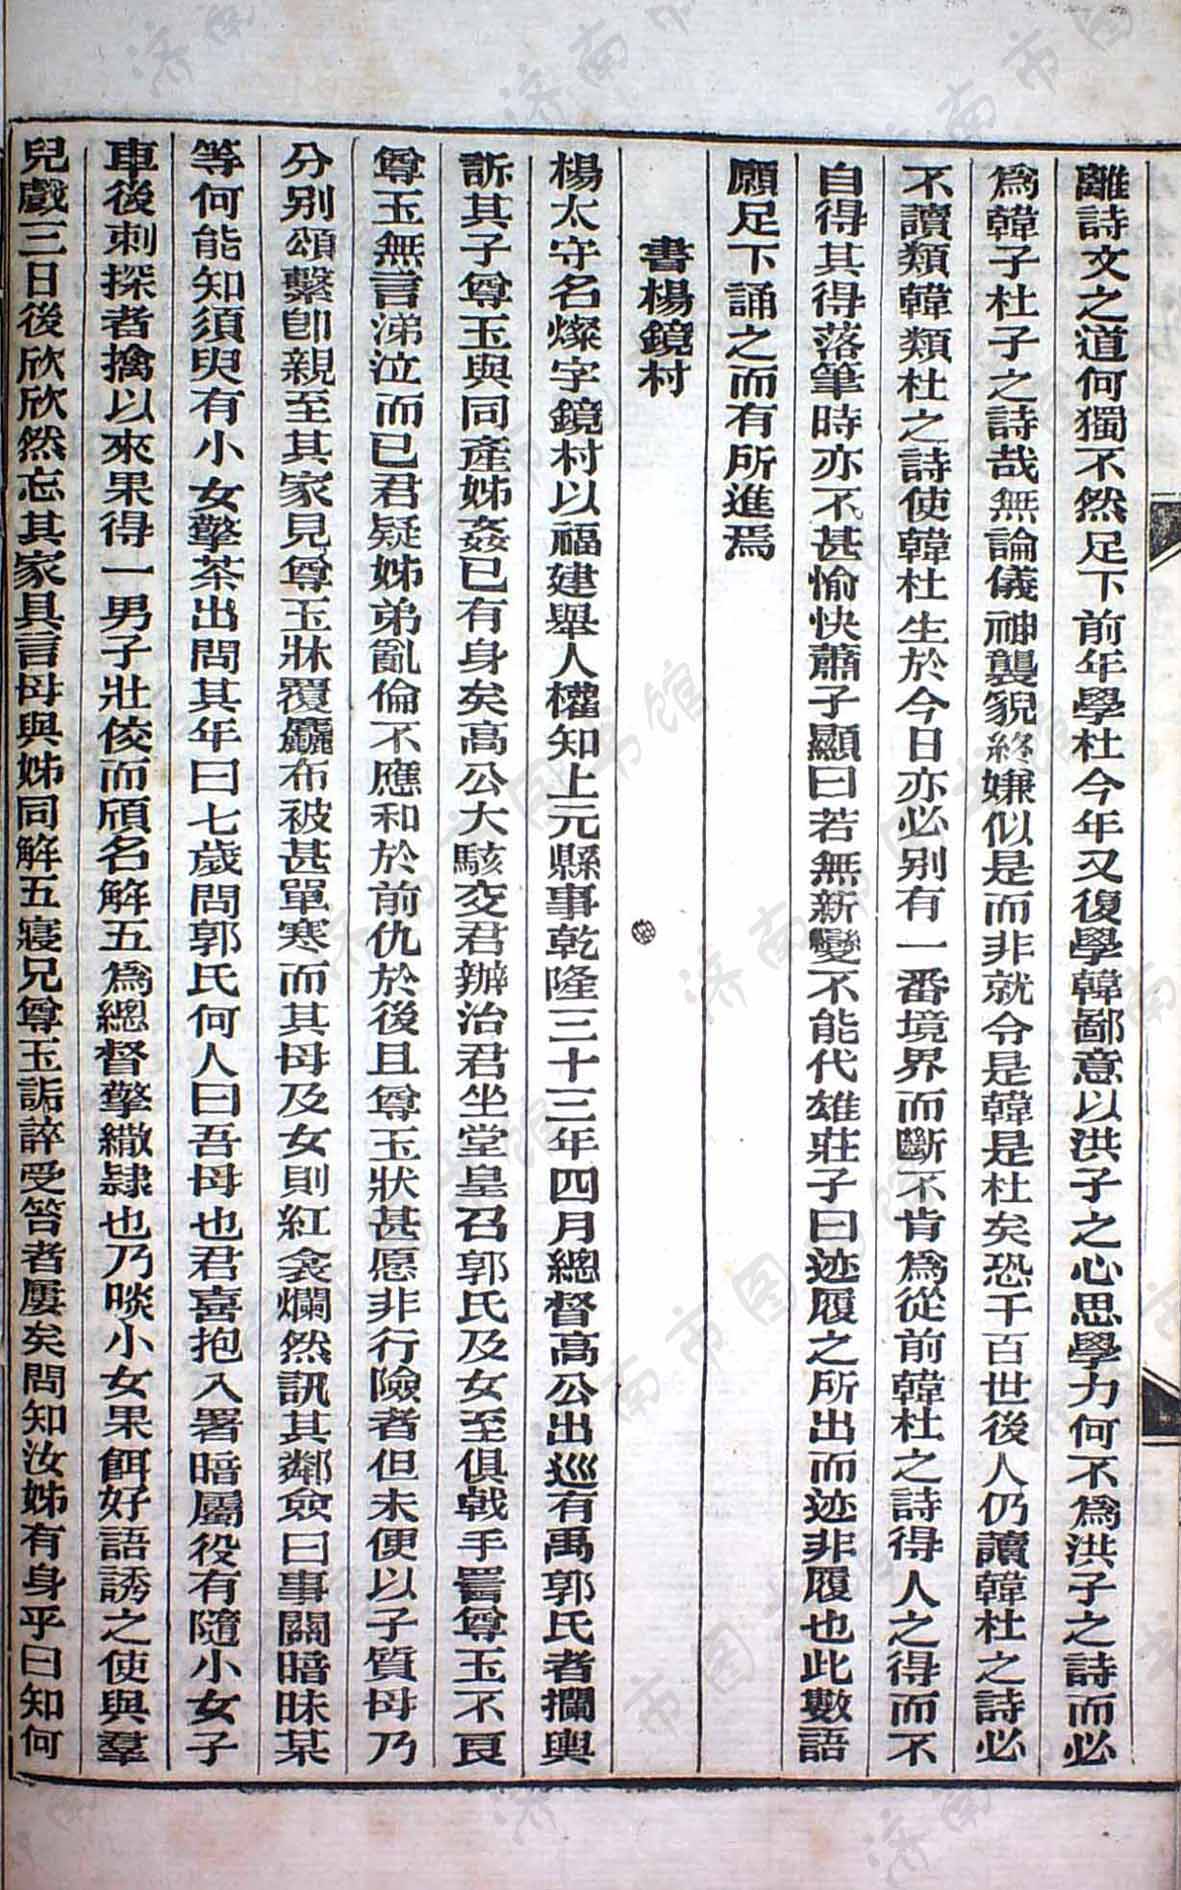 離詩文之道何獨不然足下前年學杜今年又復學韓鄙意以洪子之心思學力何不爲洪子之詩而必
爲韓子杜子之詩哉無論儀神襲貌終嫌似是而非就令是韓是杜矣恐千百世後人仍讀韓杜之詩必
不讀類韓類杜之詩使韓杜生於今日亦必别有一番境界而斷不肯爲從前韓杜之詩得人之得而不
自得其得落筆時亦不甚愉快蕭子顯曰若無新變不能代雄莊子曰迹履之所出而迹非履也此數語
願足下誦之而有所進焉
書楊鏡村
楊太守名燦字鏡村以福建舉人權知上元縣事乾隆三十三年四月總督高公出巡有萬郭氏者攔輿
訴其子尊玉與同產姊姦已有身矣高公大駭交君辦治君坐堂皇召郭氏及女至俱戟手詈尊玉不良
尊玉無言涕泣而已君疑姊弟亂倫不應和於前仇於後且尊玉狀甚愿非行險者但未便以子質母乃
分别頌繫卽親至其家見尊玉牀覆麤布被甚單寒而其母及女則紅衾爛然訊其鄰僉曰事關暗昧某
等何能知須臾有小女擎茶出問其年曰七歲問郭氏何人曰吾母也君喜抱入署暗屬役有隨小女子
車後刺探者擒以來果得一男子壯佼而頎名解五爲總督擎繖隸也乃啖小女果餌好語誘之使與羣
兒戲三日後欣欣然忘其家具言母與姊同解五寢兄尊玉詬誶受笞者屢矣問知汝姊有身乎曰知何